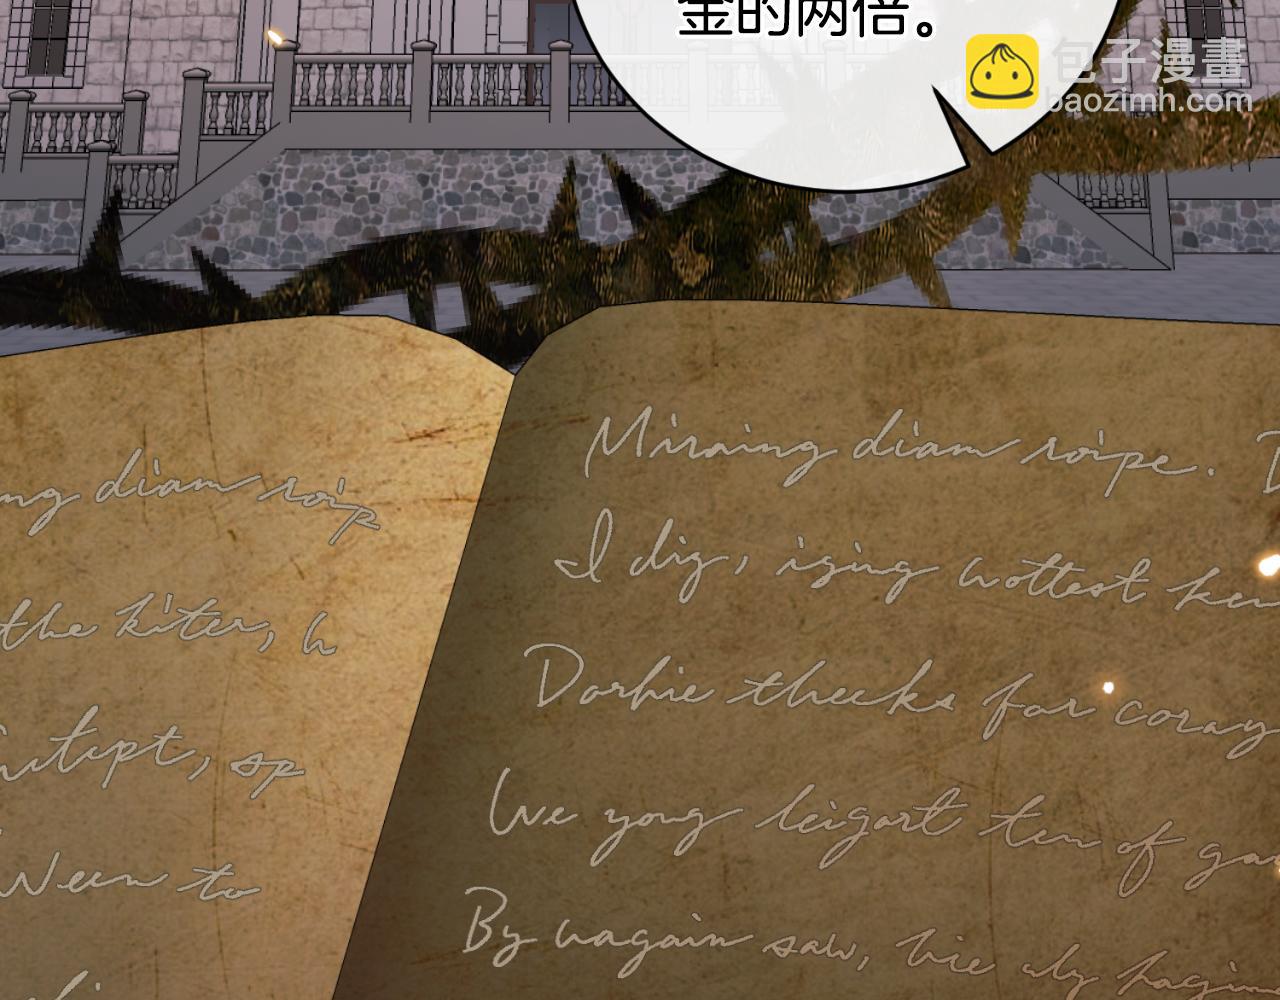 金的两倍。
包子漫畫
baozimh.com
ng diam roip
the kiter, h
utipt, sp
Ween to
Mirning diam roipe. D
I dig, ising wottest ken
Dorhie thecks for coray
We yong leigart ten of ga
By uagain saw, hie uly hagin